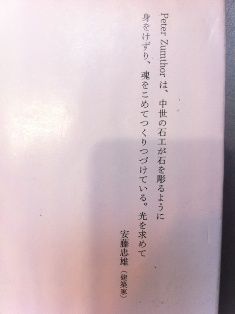 Peter Zumthor は、中世の石工が石を彫るように
身をけずり、魂をこめてつくりつづけている。光を求めて
安藤忠雄（建築家）